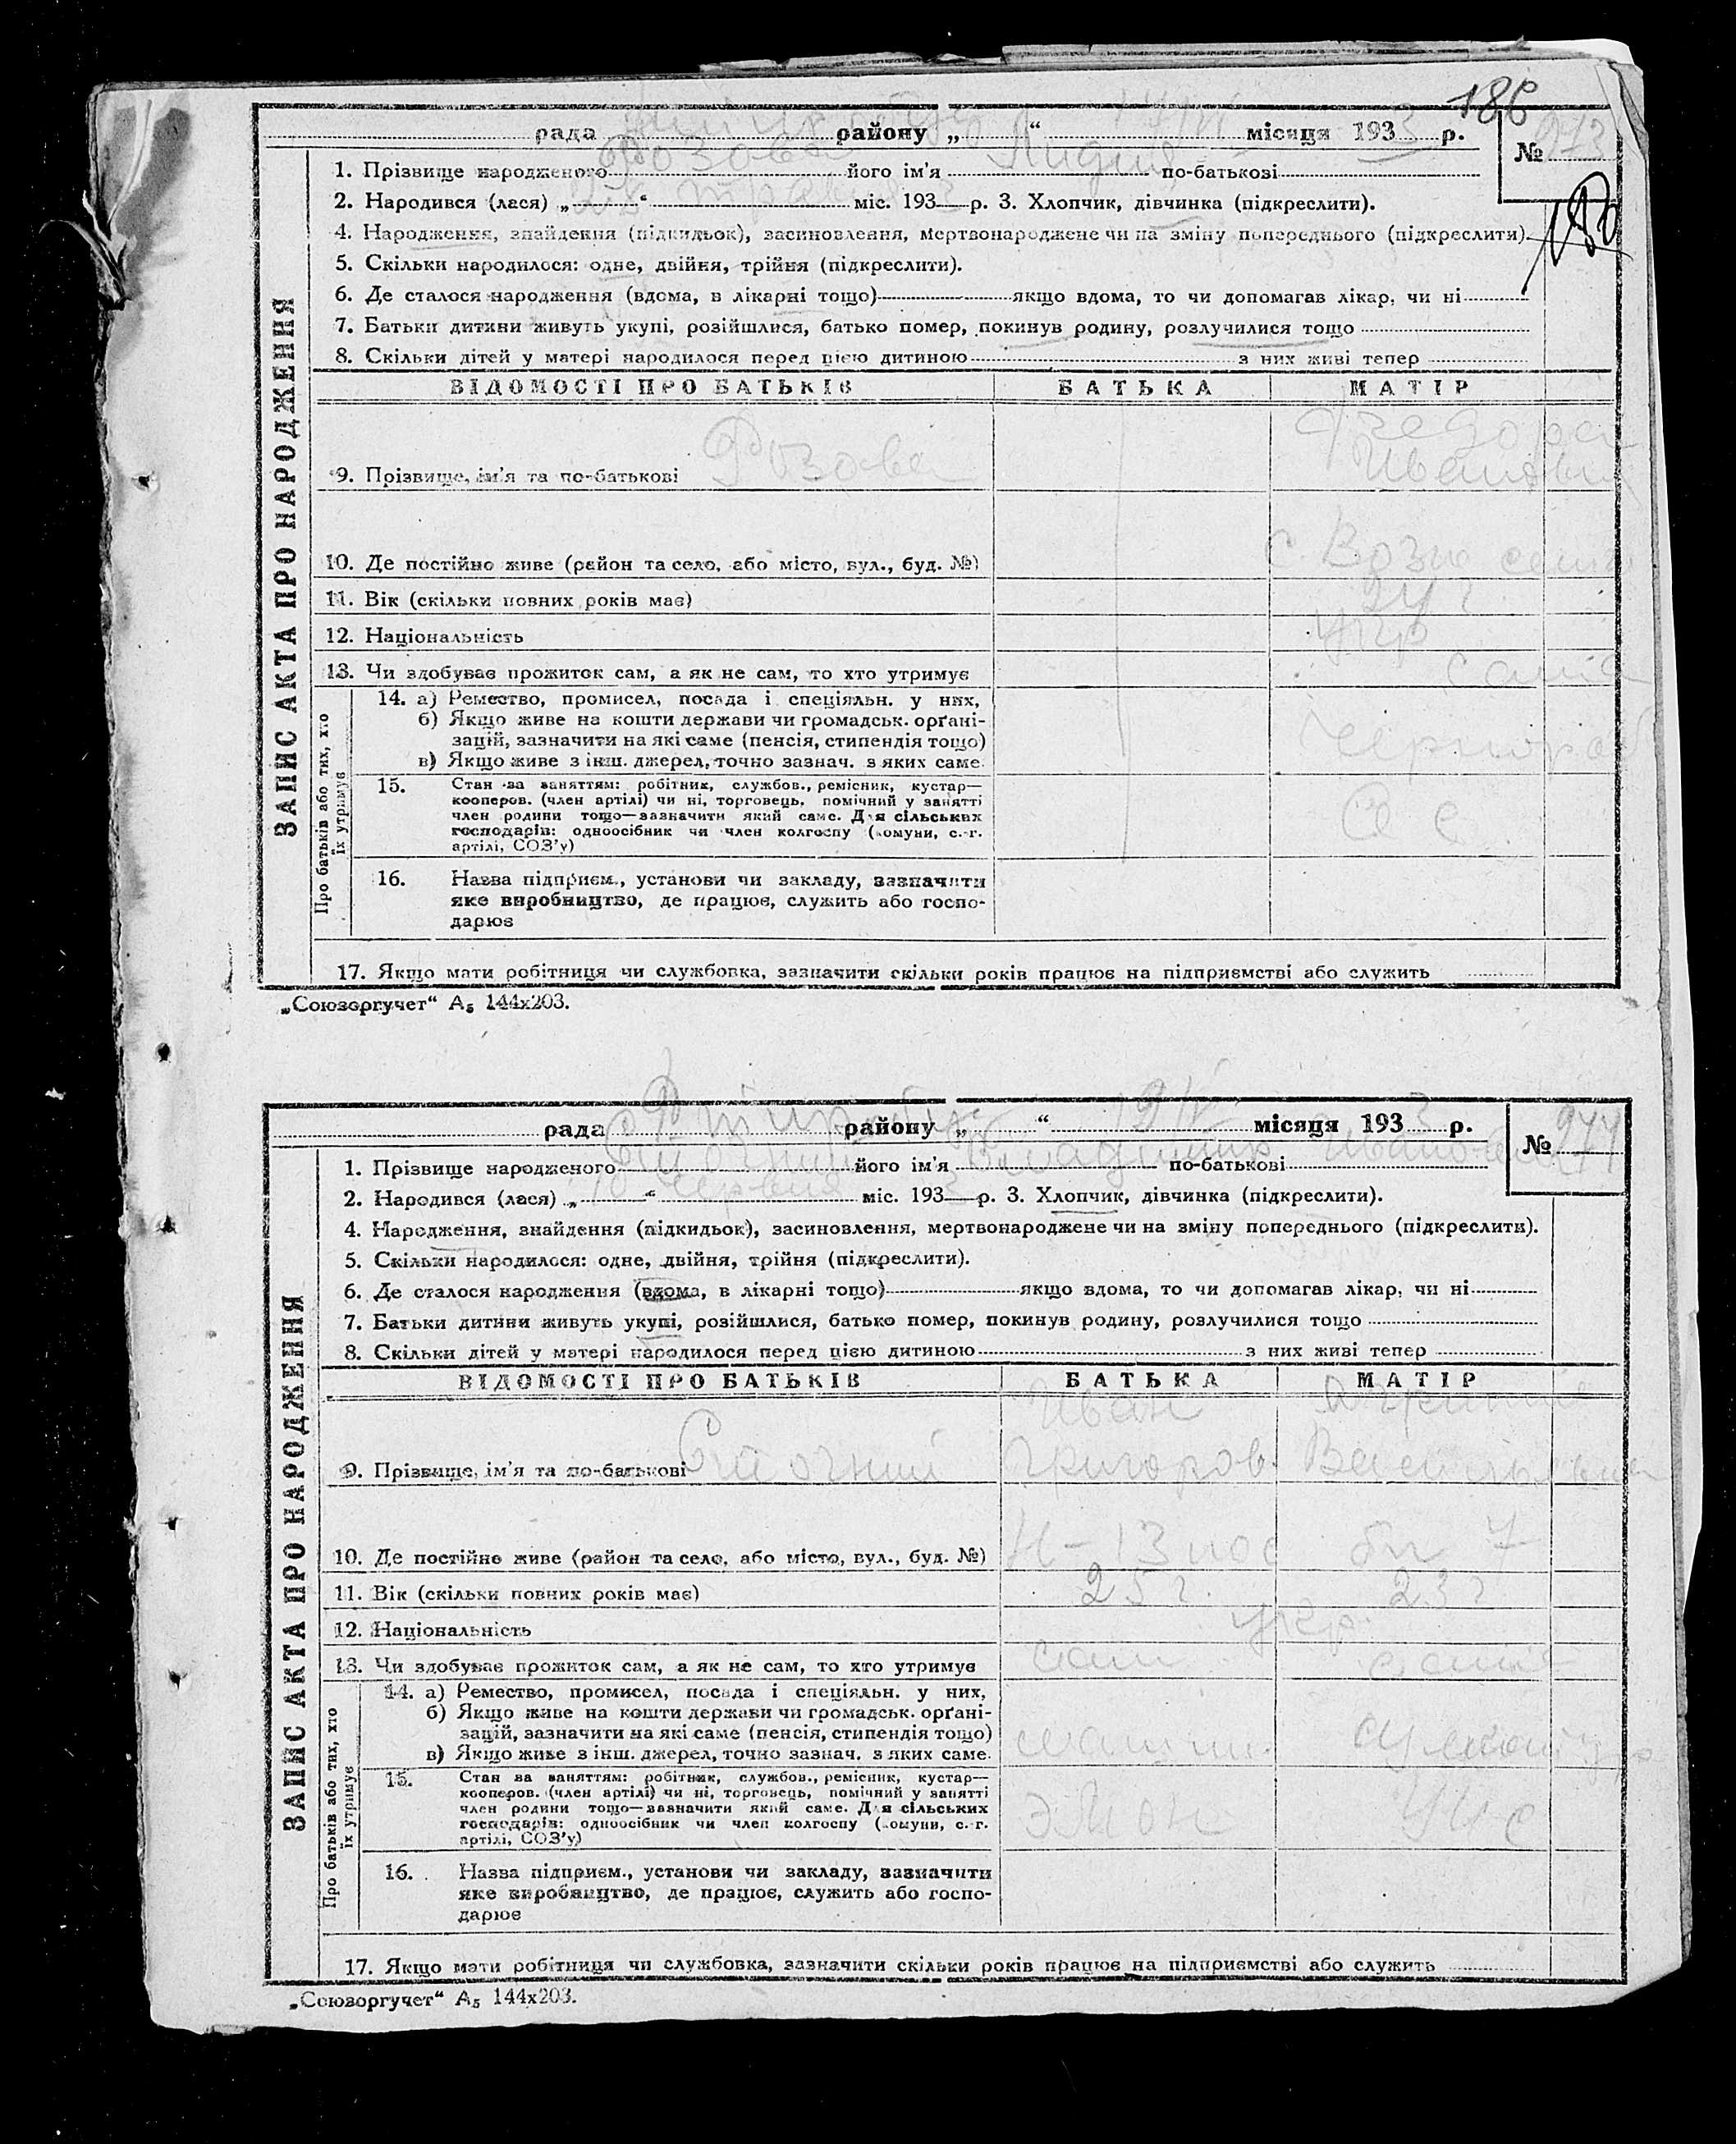 186
рада району „ “ місяця 193 3 р.
№ 973
1. Прізвище народженого Розова його ім'я Лидия по-батькові
2. Народився (лася) „ “ травня міс. 193 р. 3. Хлопчик, дівчинка (підкреслити).
4. Народження, знайдення (підкидьок), засиновлення, мертвонароджене чи на зміну попереднього (підкреслити).
5. Скільки народилося: одне, двійня, трійня (підкреслити).
6. Де сталося народження (вдома, в лікарні тощо) якщо вдома, то чи допомагав лікар, чи ні
7. Батьки дитини живуть укупі, розійшлися, батько помер, покинув родину, розлучилися тощо
8. Скільки дітей у матері народилося перед цією дитиною з них живі тепер
ЗАПИС АКТА ПРО НАРОДЖЕННЯ
ВІДОМОСТІ ПРО БАТЬКІВ БАТЬКА МАТІР
9. Прізвище, ім'я та по-батькові Розова
10. Де постійно живе (район та село, або місто, вул., буд. №)
11. Вік (скільки повних років має) 24 г
12. Національність укр
13. Чи здобуває прожиток сам, а як не сам, то хто утримує сама
Про батьків або тих, хто їх утримує
14. а) Ремество, промисел, посада і спеціяльн. у них,
б) Якщо живе на кошти держави чи громадськ. орґані-
зацій, зазначити на які саме (пенсія, стипендія тощо)
в) Якщо живе з інш. джерел, точно зазнач. з яких саме.
15. Стан за заняттям: робітник, службов., ремісник, кустар—
кооперов. (член артілі) чи ні, торговець, помічний у занятті
член родини тощо—зазначити який саме. Для сільських
господарів: одноосібник чи член колгоспу (комуни, с.-г.
артілі, СОЗ'у)
16. Назва підприєм., установи чи закладу, зазначити
яке виробництво, де працює, служить або госпо-
дарює
17. Якщо мати робітниця чи службовка, зазначити скільки років працює на підприємстві або служить
„Союзоргучет“ А₅ 144х203.
рада району „ “ місяця 193 3 р.
№ 974
1. Прізвище народженого його ім'я Владимир по-батькові Иванович
2. Народився (лася) „ 10 “ червня міс. 193 р. 3. Хлопчик, дівчинка (підкреслити).
4. Народження, знайдення (підкидьок), засиновлення, мертвонароджене чи на зміну попереднього (підкреслити).
5. Скільки народилося: одне, двійня, трійня (підкреслити).
6. Де сталося народження (вдома, в лікарні тощо) якщо вдома, то чи допомагав лікар, чи ні
7. Батьки дитини живуть укупі, розійшлися, батько помер, покинув родину, розлучилися тощо
8. Скільки дітей у матері народилося перед цією дитиною з них живі тепер
ЗАПИС АКТА ПРО НАРОДЖЕННЯ
ВІДОМОСТІ ПРО БАТЬКІВ БАТЬКА МАТІР
Иван
9. Прізвище, ім'я та по-батькові Григоров.
10. Де постійно живе (район та село, або місто, вул., буд. №)
11. Вік (скільки повних років має) 25 г. 23 г
12. Національність укр.
13. Чи здобуває прожиток сам, а як не сам, то хто утримує сам сама
Про батьків або тих, хто їх утримує
14. а) Ремество, промисел, посада і спеціяльн. у них,
б) Якщо живе на кошти держави чи громадськ. орґані-
зацій, зазначити на які саме (пенсія, стипендія тощо)
в) Якщо живе з інш. джерел, точно зазнач. з яких саме.
15. Стан за заняттям: робітник, службов., ремісник, кустар—
кооперов. (член артілі) чи ні, торговець, помічний у занятті
член родини тощо—зазначити який саме. Для сільських
господарів: одноосібник чи член колгоспу (комуни, с.-г.
артілі, СОЗ'у)
16. Назва підприєм., установи чи закладу, зазначити
яке виробництво, де працює, служить або госпо-
дарює
17. Якщо мати робітниця чи службовка, зазначити скільки років працює на підприємстві або служить
„Союзоргучет“ А₅ 144х203.